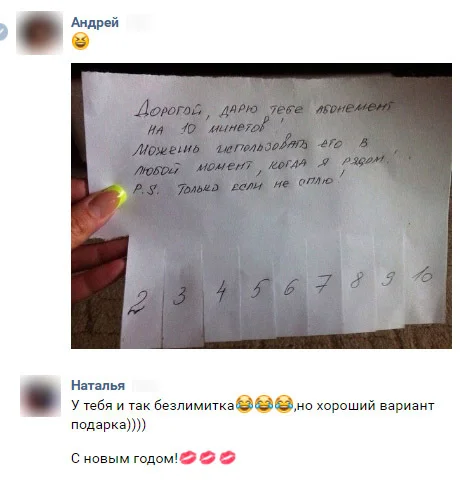 Андрей
Дорогой, дарю тебе абонемент
на 10 минетов!
Можешь использовать его в
любой момент, когда я рядом!..
P.S. Только если не сплю!
2 3 4 5 6 7 8 9 10
Наталья
У тебя и так безлимитка😂😂😂,но хороший вариант
подарка))))
С новым годом!💋💋💋